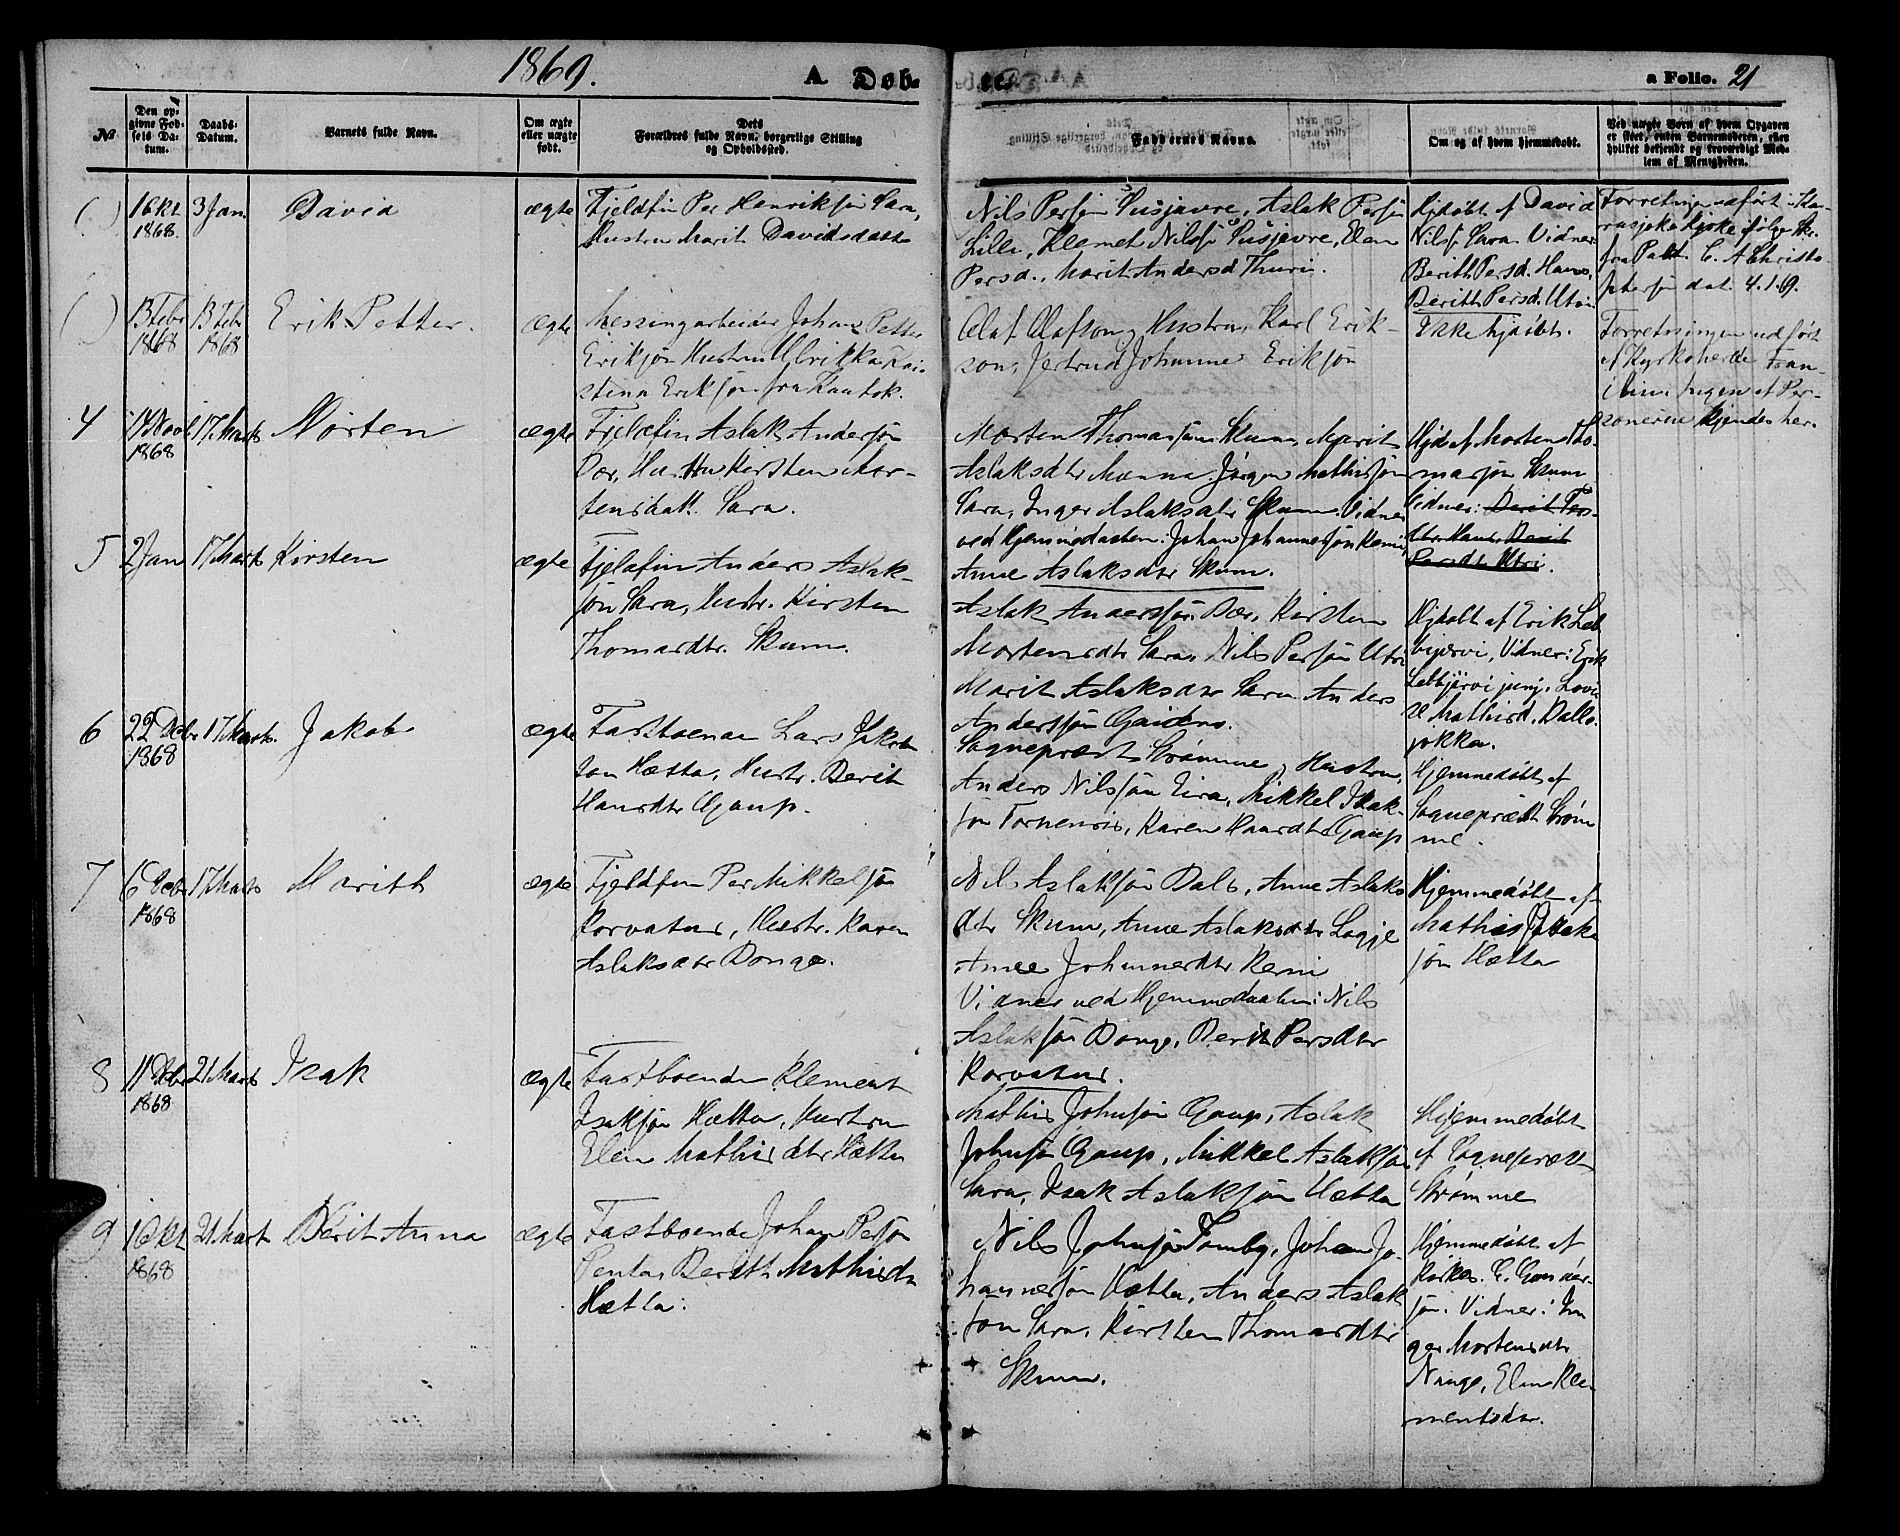 1869.
A. Døb-
te.
a Folio. 21
№
Den op-
givne Fød-
sels Da-
tum.
Daabs-
Datum.
Barnets fulde Navn.
Om ægte
eller uægte
født.
Dets
Forældres fulde Navn, borgerlige Stilling
og Opholdssted.
Faddernes Navne.
Om og af hvem hjemmedøbt.
Ved uægte Børn af hvem Opgaven
er skeet, enten Barnemoderen, eller
hvilket bekjendt og troværdigt Med-
lem af Menigheden.
( )
1 Okt
1868.
3 Jan.
David
ægte
Fjeldfin Per Henriksøn Sara,
Hustru Marit Davidsdatt
Nils Persøn Susjavre, Aslak Persøn
Lille, Klemet Nilssø Susjavre, Elen
Persd., Marit Andersd Thuri.
Hjdøbt af David
Nilss. Sara. Vidner
Berith Persd. Hans,
Berith Persd. Utsi
Forretningen udført i Ka-
rasjoks Kirke ifølge Skr.
fra Past. C. A Christo
phersøn dat. 4.1.69.
( )
13 Febr
1868
13 Feb
1868
Erik Petter.
ægte
Messingarbeider Johan Petter
Eriksøn Hustru Ulrikka Kri-
stina Eriksøn fra Kautok.
Olaf Olafson & Hustru, Karl Erik-
son, Jertrud Johanne Eriksøn
Ikke hjdøbt.
Forretningen udført
af Kyrkoherde Gran-
i Ingen af Per-
sonerne kjendes her.
4
14 Novb
1868
17 Marts
Morten
ægte
Fjeldfin Aslak Andersøn
Bær, Hustru Kirsten Mor-
tensdatt. Sara.
Morten Thomassøn Skum, Marit
Aslaksdtr Manna. Jørgen Mathissøn
Sara, Inger Aslaksdtr Skum. Vidner
ved Hjemmedaaben: Johan Johannessøn Kemi,
Anne Aslaksdtr Skum.
Hjd af Morten Tho-
massøn Skum
Vidner: Berit Pers-
dtr Hans, Berit
Persdt. Utsi.
5
2 Jan
17 Marts
Kirsten
ægte
Fjeldfin Anders Aslak-
søn Sara, Hustr. Kirsten
Thomasdtr. Skum.
Aslak Andersøn Bær, Kirsten
Mortensdtr Sara, Nils Persøn Utsi
Marit Aslaksdtr Sara Anders
Anderssøn Gaideno.
Hjdøbt af Erik Leb
bijervi, Vidner: Erik
Lebbjärvi junj. Lovi
se Mathisd. Dallo-
jokka.
6
22 Debr
1868
17 Marts.
Jakob
ægte
Fastboende Lars Jakob
søn Hætta, Hustr. Berit
Hansdtr Gaup.
Sogneprest Strømme & Hustru,
Anders Nilssøn Eira, Mikkel Isak-
søn Tornensis, Karen Hansdtr Gaup
Hjemmedøbt af
Sogneprest Strøm
me.
7
6 Decbr
1868
17 Marts
Marith
ægte
Fjeldfin Per Mikkelsøn
Korvatus, Hustr. Karen
Aslaksdtr Bongo.
Nils Aslaksøn Bals, Anne Aslaks
dtr Skum, Anne Aslaksdtr Logje
Anne Johannesdtr Kemi
Vidner ved Hjemmedaaben: Nils
Aslaksøn Bongo, Berit Persdtr
Korvatus.
Hjemmedøbt af
Mathis Isaks
søn Hætta
8
11 Debr
1868
21 Marts
Isak
ægte
Fastboende Klemet
Isaksøn Hætta, Hustru
Elen Mathisdtr Hætta
Mathis Johnsøn Gaup, Aslak
Johnsøn Gaup, Mikkel Aslaksøn
Sara, Isak Aslaksøn Hætta
Hjemmedøbt
af Sogneprest
Strømme
9
1 Okt
1868
21 Mart
Berit Anna
ægte
Fastboende Johan Persøn
Pentas Berith Mathisdr
Hætta.
Nils Johnsøn Tornby, Johan Jo-
hannessøn Hætta, Anders Aslak
søn Sara, Kirsten Thomasdtr
Skum.
Hjemmedøbt af
Kirkes. G. Gunder-
søn. Vidner: In
ger Mortensdtr
Ningo, Elen Kle-
mentsdtr.